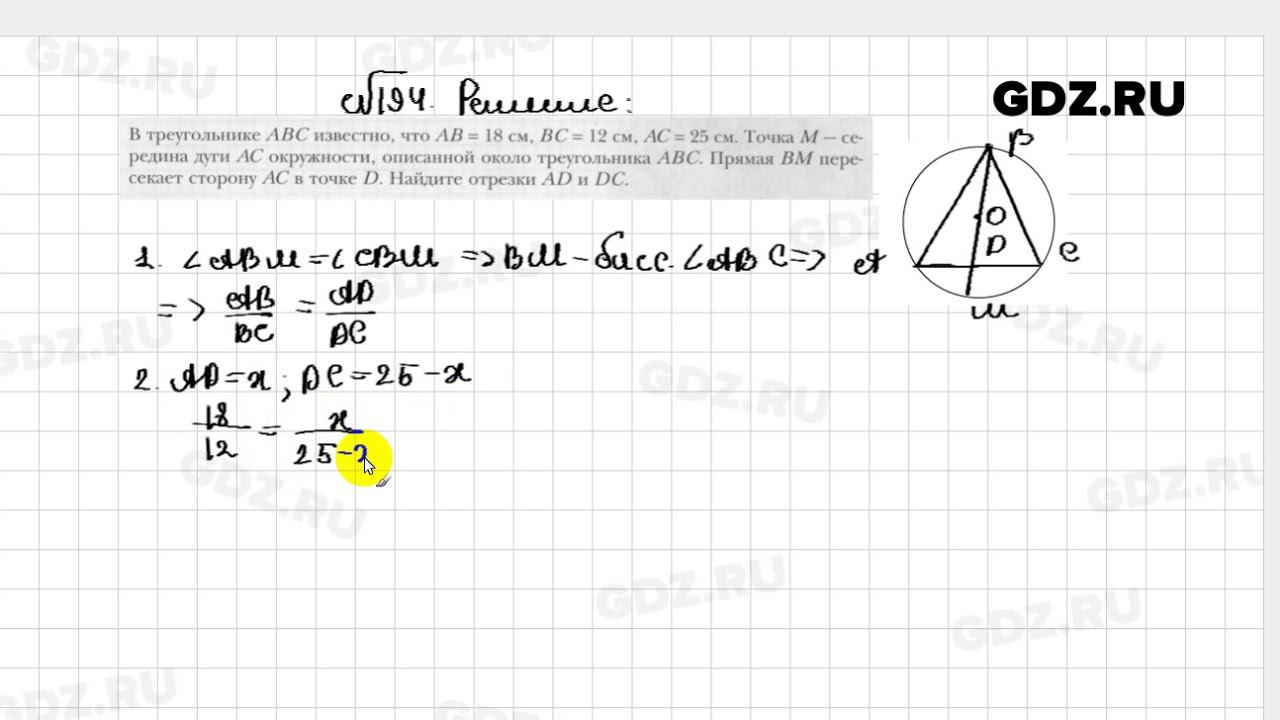 GDZ.RU
GDZ.RU
№194. Решение:
GDZ.RU
В треугольнике ABC известно, что AB = 18 см, BC = 12 см, AC = 25 см. Точка M — се-
редина дуги AC окружности, описанной около треугольника ABC. Прямая BM пере-
секает сторону AC в точке D. Найдите отрезки AD и DC.
B
O
D
A
C
M
GDZ.RU
1. ∠ABM = ∠CBM => BM - бисс. ∠ABC =>
GDZ.RU
GDZ.RU
=> AB/BC = AD/DC
GDZ.RU
2. AD = x; DC = 25 - x
GDZ.RU
18/12 = x/25-
GDZ.RU
GDZ.RU
GDZ.RU
GDZ.RU
GDZ.RU
GDZ.RU